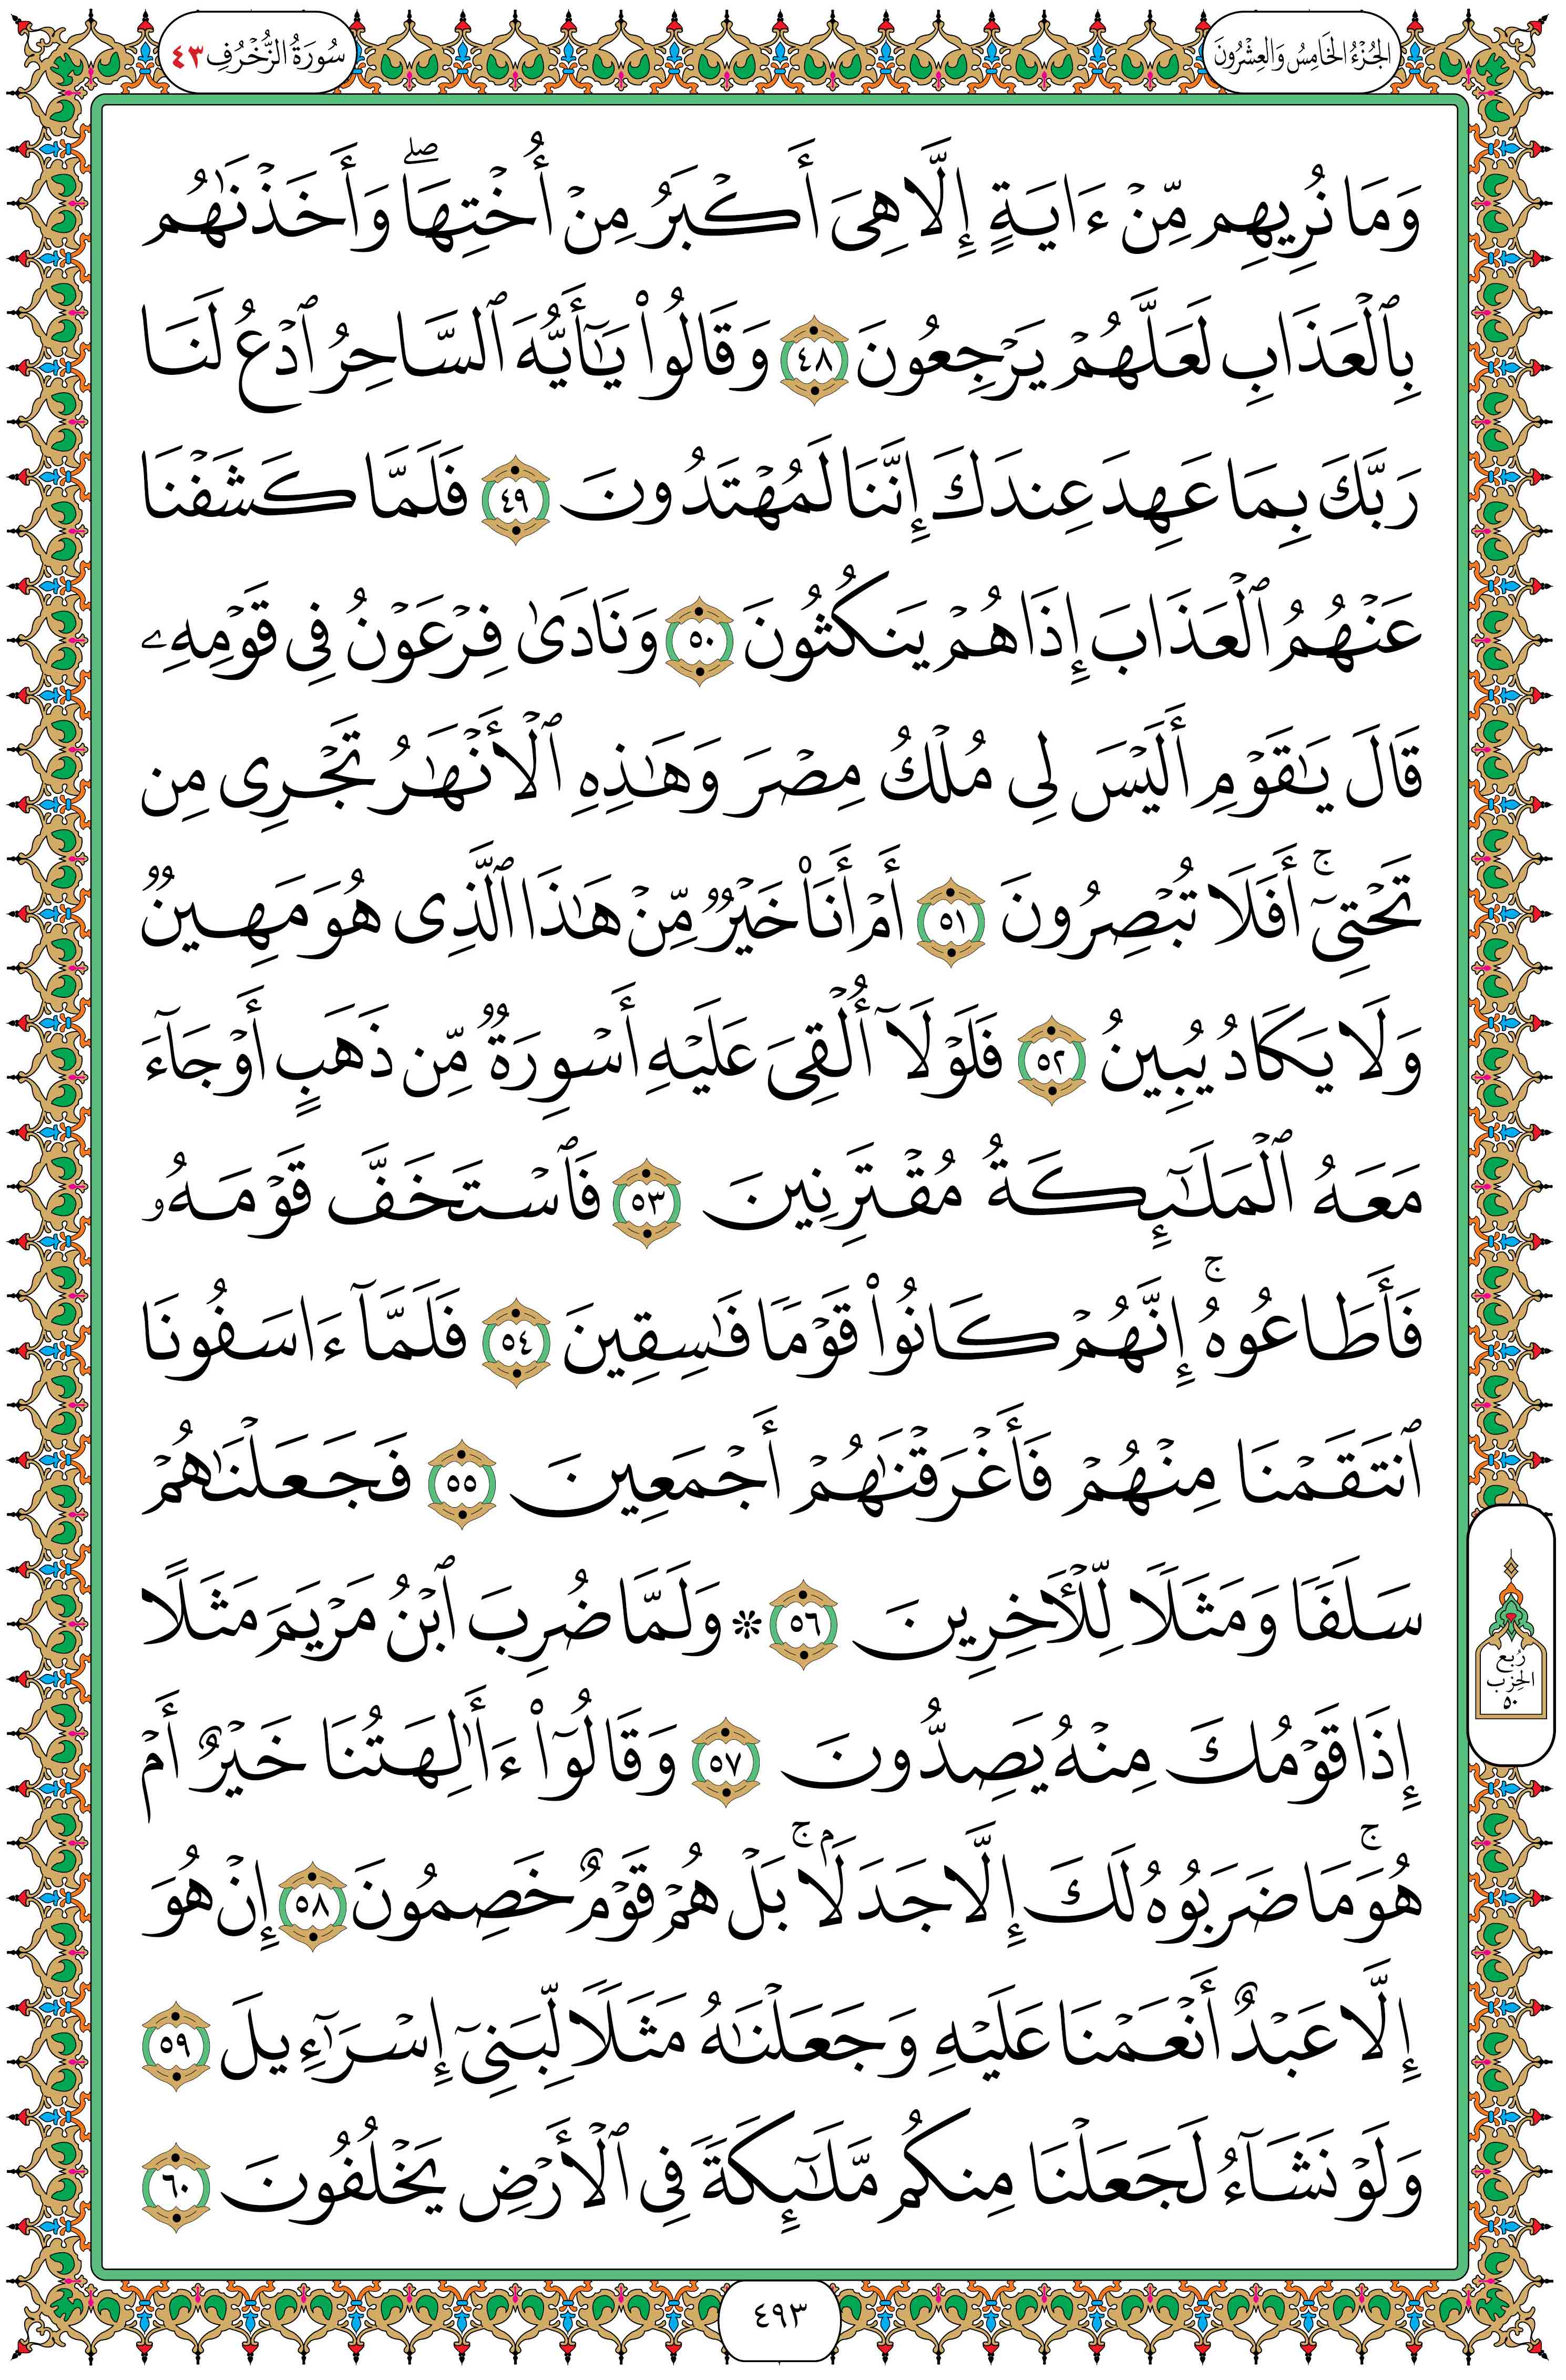 الجُزْءُ الخَامِسُ وَالعِشْرُونَ
سُورَةُ الزُّخْرُفِ ٤٣
وَمَا نُرِيهِم مِّنْ ءَايَةٍ إِلَّا هِىَ أَكْبَرُ مِنْ أُخْتِهَا ۖ وَأَخَذْنَٰهُم
بِٱلْعَذَابِ لَعَلَّهُمْ يَرْجِعُونَ ٤٨ وَقَالُوا۟ يَٰٓأَيُّهَ ٱلسَّاحِرُ ٱدْعُ لَنَا
رَبَّكَ بِمَا عَهِدَ عِندَكَ إِنَّنَا لَمُهْتَدُونَ ٤٩ فَلَمَّا كَشَفْنَا
عَنْهُمُ ٱلْعَذَابَ إِذَا هُمْ يَنكُثُونَ ٥٠ وَنَادَىٰ فِرْعَوْنُ فِى قَوْمِهِۦ
قَالَ يَٰقَوْمِ أَلَيْسَ لِى مُلْكُ مِصْرَ وَهَٰذِهِ ٱلْأَنْهَٰرُ تَجْرِى مِن
تَحْتِىٓ ۚ أَفَلَا تُبْصِرُونَ ٥١ أَمْ أَنَا۠ خَيْرٌ مِّنْ هَٰذَا ٱلَّذِى هُوَ مَهِينٌ
وَلَا يَكَادُ يُبِينُ ٥٢ فَلَوْلَآ أُلْقِىَ عَلَيْهِ أَسْوِرَةٌ مِّن ذَهَبٍ أَوْ جَآءَ
مَعَهُ ٱلْمَلَٰٓئِكَةُ مُقْتَرِنِينَ ٥٣ فَٱسْتَخَفَّ قَوْمَهُۥ
فَأَطَاعُوهُ ۚ إِنَّهُمْ كَانُوا۟ قَوْمًا فَٰسِقِينَ ٥٤ فَلَمَّآ ءَاسَفُونَا
ٱنتَقَمْنَا مِنْهُمْ فَأَغْرَقْنَٰهُمْ أَجْمَعِينَ ٥٥ فَجَعَلْنَٰهُمْ
سَلَفًا وَمَثَلًا لِّلْـَٔاخِرِينَ ٥٦ * وَلَمَّا ضُرِبَ ٱبْنُ مَرْيَمَ مَثَلًا
إِذَا قَوْمُكَ مِنْهُ يَصِدُّونَ ٥٧ وَقَالُوٓا۟ ءَأَٰلِهَتُنَا خَيْرٌ أَمْ
هُوَ ۚ مَا ضَرَبُوهُ لَكَ إِلَّا جَدَلًۢا ۚ بَلْ هُمْ قَوْمٌ خَصِمُونَ ٥٨ إِنْ هُوَ
إِلَّا عَبْدٌ أَنْعَمْنَا عَلَيْهِ وَجَعَلْنَٰهُ مَثَلًا لِّبَنِىٓ إِسْرَٰٓءِيلَ ٥٩
وَلَوْ نَشَآءُ لَجَعَلْنَا مِنكُم مَّلَٰٓئِكَةً فِى ٱلْأَرْضِ يَخْلُفُونَ ٦٠
رُبع
الحِزب
٥٠
٤٩٣